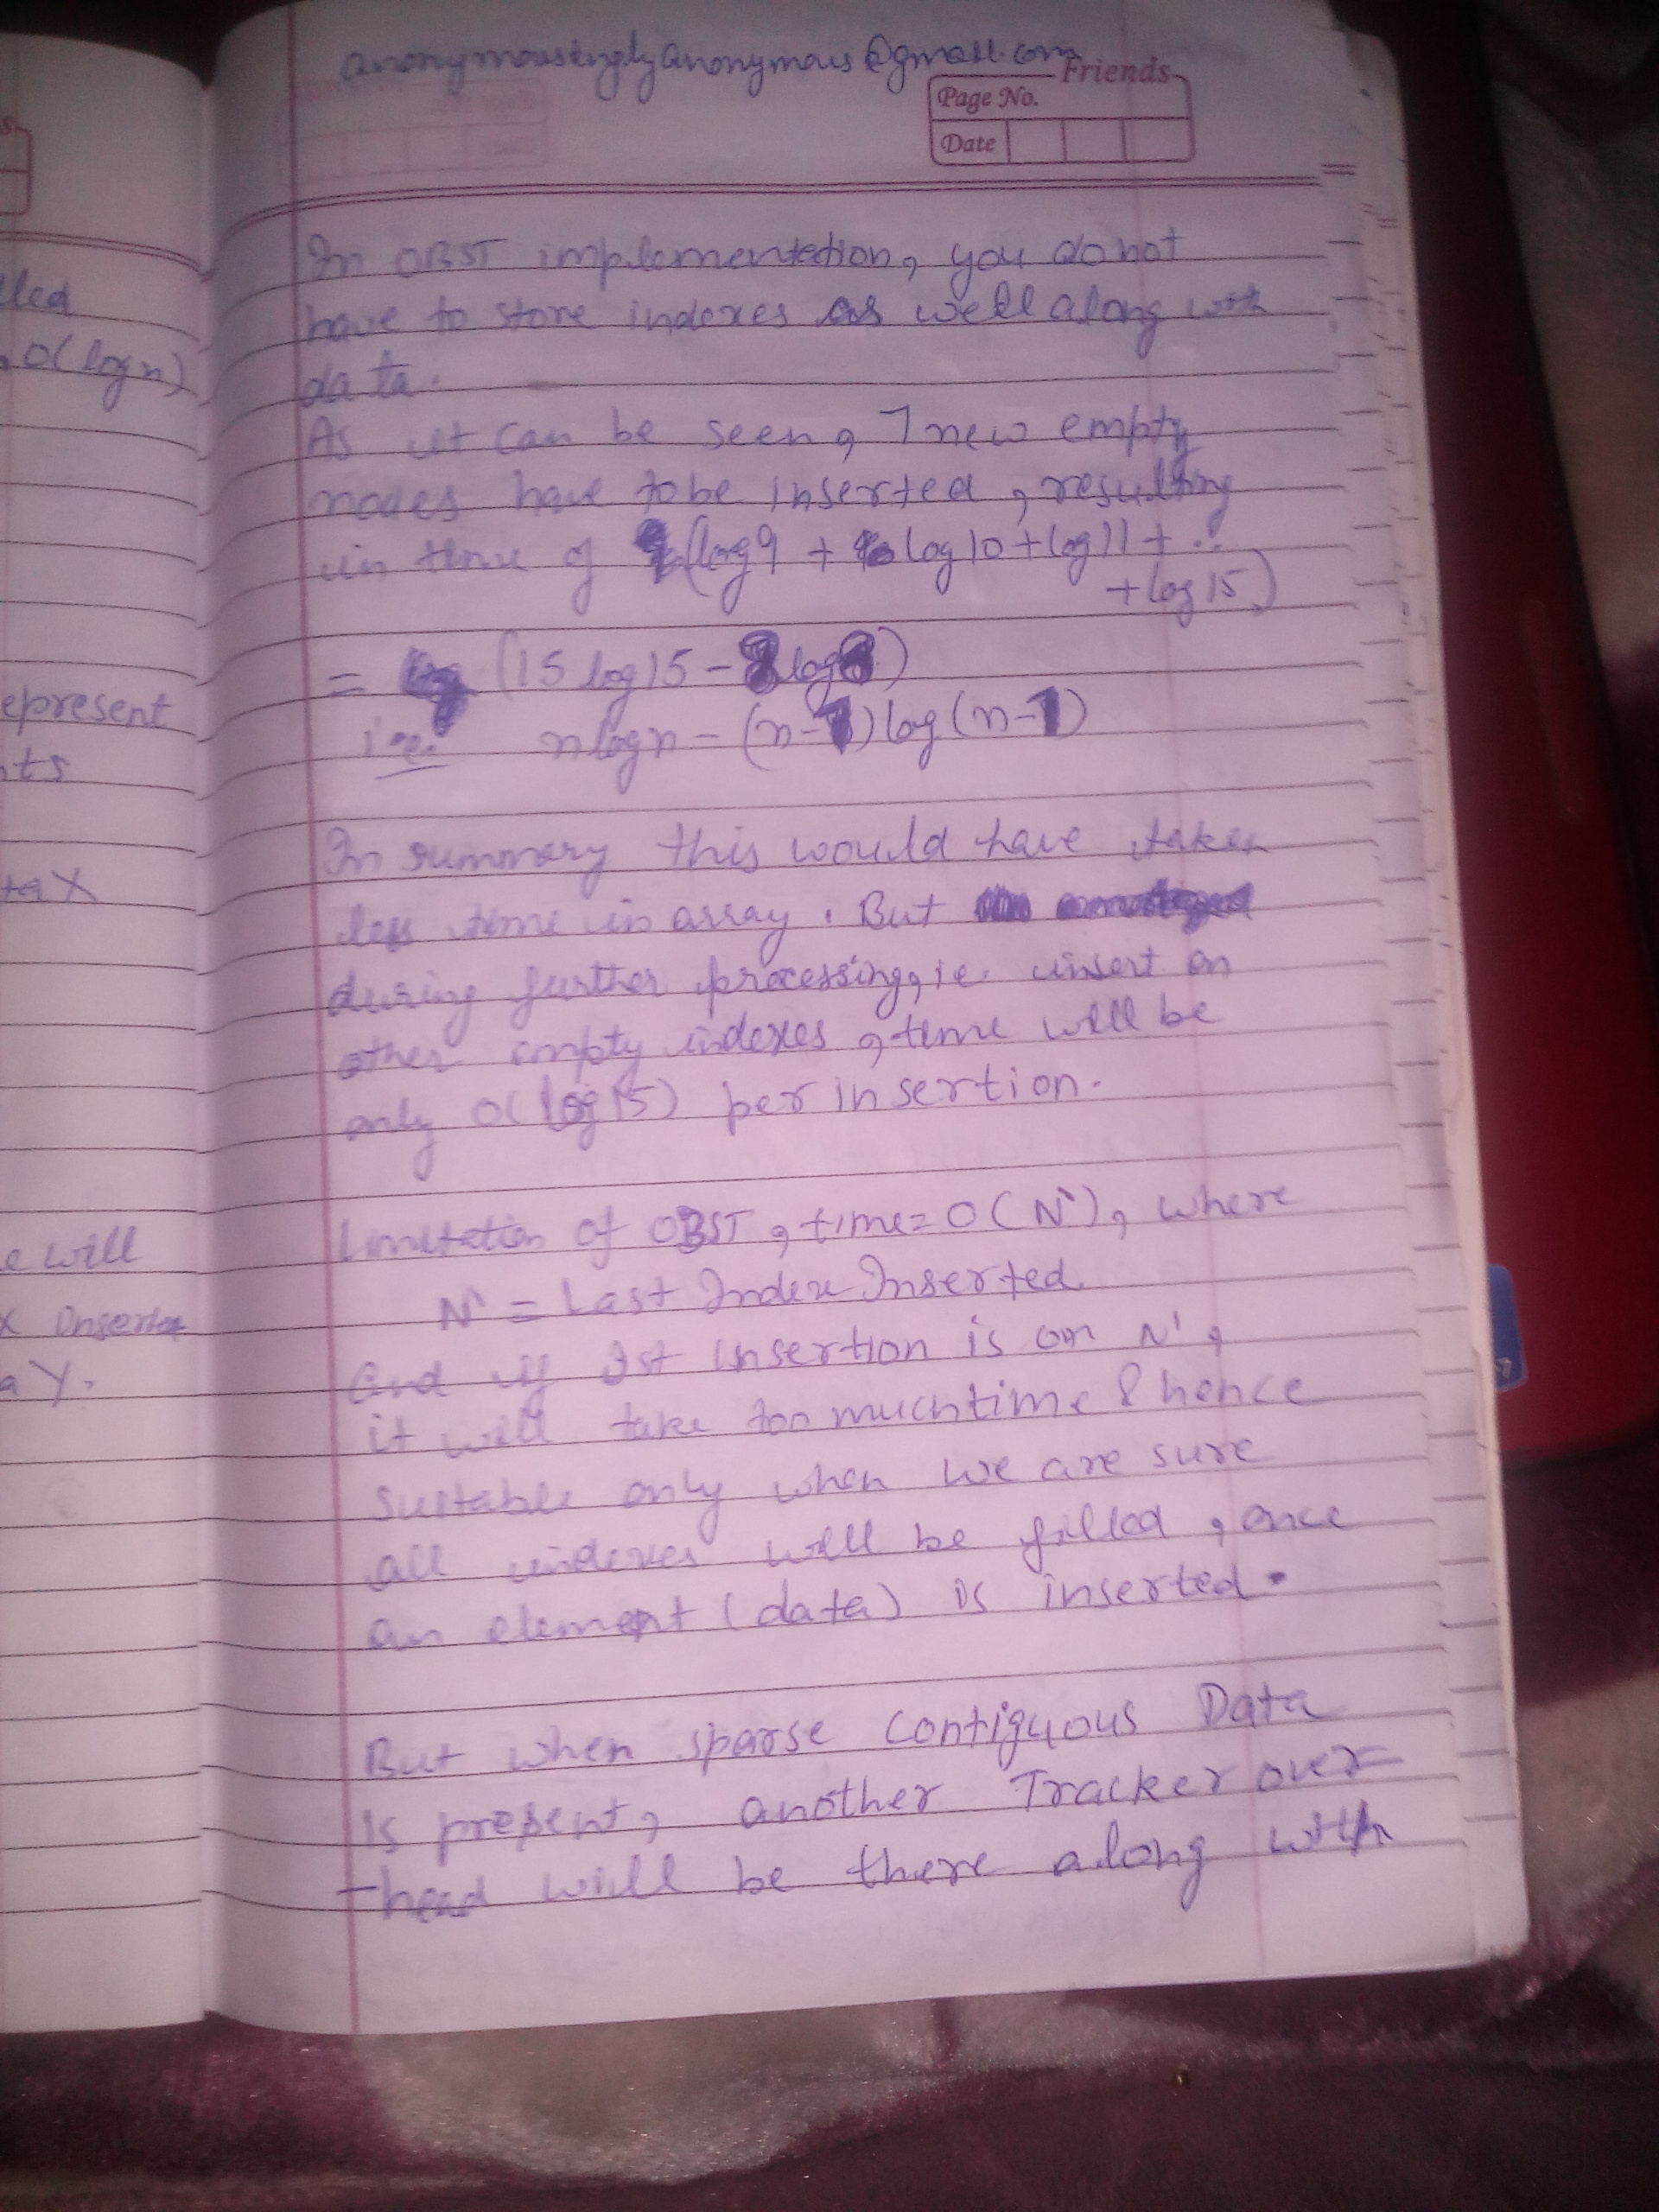 anonymoustinglyanonymous@gmail.com
Friends
Page No.
Date
In OBST implementation, you do not
have to store indexes as well along with
data.
As it can be seen, 7 new empty
nodes have to be inserted, resulting
in time of (log9 + log10 + log11 + ..
+ log15)
= (15 log15 - 8 log8)
i.e. nlogn - (n-1)log(n-1)
In summary this would have taken
less time in array. But
during further processing, i.e. insert on
other empty indexes, time will be
only O(log15) per insertion.
Limitation of OBST, time = O(N'), where
N' = Last Index Inserted.
And if Ist insertion is on N',
it will take too much time & hence
suitable only when we are sure
all indexes will be filled, once
an element (data) is inserted.
But when sparse contiguous Data
is present, another Tracker over-
head will be there along with
lled
O(logn)
epresent
nts
ta X
e will
x Inserted
a Y.